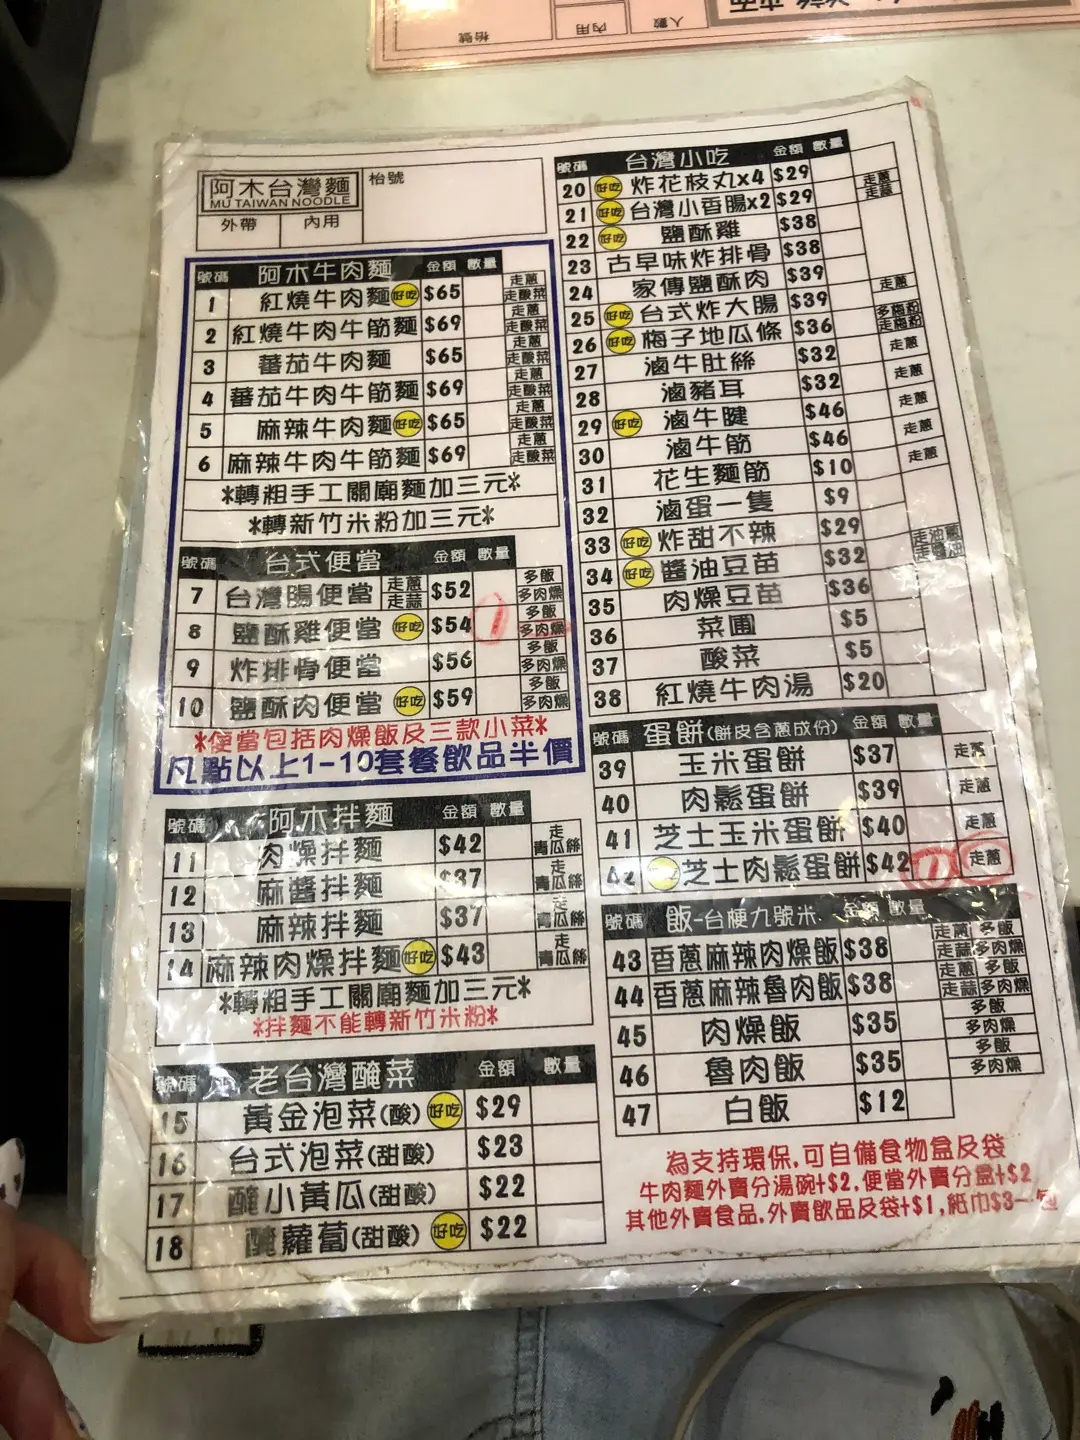 枱號
內用
人數
阿木台灣麵
MU TAIWAN NOODLE
枱號
外帶 內用
號碼 阿木牛肉麵 金額 數量
1 紅燒牛肉麵 好吃 $65 走蔥 走酸菜
2 紅燒牛肉牛筋麵 $69 走蔥 走酸菜
3 蕃茄牛肉麵 $65 走蔥 走酸菜
4 蕃茄牛肉牛筋麵 $69 走蔥 走酸菜
5 麻辣牛肉麵 好吃 $65 走蔥 走酸菜
6 麻辣牛肉牛筋麵 $69 走蔥 走酸菜
*轉粗手工關廟麵加三元*
*轉新竹米粉加三元*
號碼 台式便當 金額 數量
7 台灣腸便當 走蔥 走蒜 $52 多飯 多肉燥
8 鹽酥雞便當 好吃 $54 1 多飯 多肉燥
9 炸排骨便當 $56 多飯 多肉燥
10 鹽酥肉便當 好吃 $59 多飯 多肉燥
*便當包括肉燥飯及三款小菜*
凡點以上1-10套餐飲品半價
號碼 阿木拌麵 金額 數量
11 肉燥拌麵 $42 走青瓜絲
12 麻醬拌麵 $37 走青瓜絲
13 麻辣拌麵 $37 走青瓜絲
14 麻辣肉燥拌麵 好吃 $43 走青瓜絲
*轉粗手工關廟麵加三元*
*拌麵不能轉新竹米粉*
號碼 老台灣醃菜 金額 數量
15 黃金泡菜(酸) 好吃 $29
16 台式泡菜(甜酸) $23
17 醃小黃瓜(甜酸) $22
18 醃蘿蔔(甜酸) 好吃 $22
號碼 台灣小吃 金額 數量
20 好吃 炸花枝丸x4 $29
21 好吃 台灣小香腸x2 $29 走蔥 走蒜
22 好吃 鹽酥雞 $38
23 古早味炸排骨 $38
24 家傳鹽酥肉 $39
25 好吃 台式炸大腸 $39 走蔥
26 好吃 梅子地瓜條 $36 多梅粉 走梅粉
27 滷牛肚絲 $32 走蔥
28 滷豬耳 $32 走蔥
29 好吃 滷牛腱 $46 走蔥
30 滷牛筋 $46 走蔥
31 花生麵筋 $10 走蔥
32 滷蛋一隻 $9
33 好吃 炸甜不辣 $29
34 好吃 醬油豆苗 $32 走油蔥
35 肉燥豆苗 $36
36 菜圃 $5
37 酸菜 $5
38 紅燒牛肉湯 $20
號碼 蛋餅(餅皮含蔥成份) 金額 數量
39 玉米蛋餅 $37 走蔥
40 肉鬆蛋餅 $39 走蔥
41 芝士玉米蛋餅 $40 走蔥
42 芝士肉鬆蛋餅 $42 1 走蔥
號碼 飯-台梗九號米 金額 數量
43 香蔥麻辣肉燥飯 $38 走蔥 多飯 走蒜 多肉燥
44 香蔥麻辣魯肉飯 $38 走蔥 多飯 走蒜 多肉燥
45 肉燥飯 $35 多飯 多肉燥
46 魯肉飯 $35 多飯 多肉燥
47 白飯 $12
為支持環保,可自備食物盒及袋
牛肉麵外賣分湯碗+$2,便當外賣分盒+$2
其他外賣食品,外賣飲品及袋+$1,紙巾$3一包